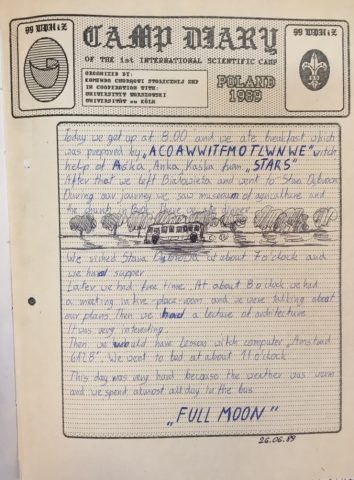 99 WDH i Z
CAMP DIARY
OF THE 1st INTERNATIONAL SCIENTIFIC CAMP
Z i HDW 99
ORGANIZED BY:
KOMENDA CHORĄGWI STOŁECZNEJ ZHP
IN COOPERATION WITH:
UNIWERSYTET WARSZAWSKI
UNIVERSITÄT zu KÖLN
POLAND
1989
Today we got up at 8.00 and we ate breakfast which
was prepared by „ACOAWWITFMOTLWNWE" witch
help of Aśka, Anka, Kaśka from „STARS"
After that we left Białowieża and went to Stara Dąbrowa
During our journey we saw museum of agriculture and
the church
We visited Stara Dąbrowa at about 7 o'clock and
we had supper
Later we had free time. At about 8 o'clock we had
a meeting in fire place-room and we were talking about
our plans. Then we had a lecture of architecture.
It was very interesting.
Then we would have lesson witch computer „Amstrad
6128". We went to bed at about 11 o'clock
This day was very hard because the weather was warm
and we spend almost all day in the bus
„FULL MOON"
26.06.89